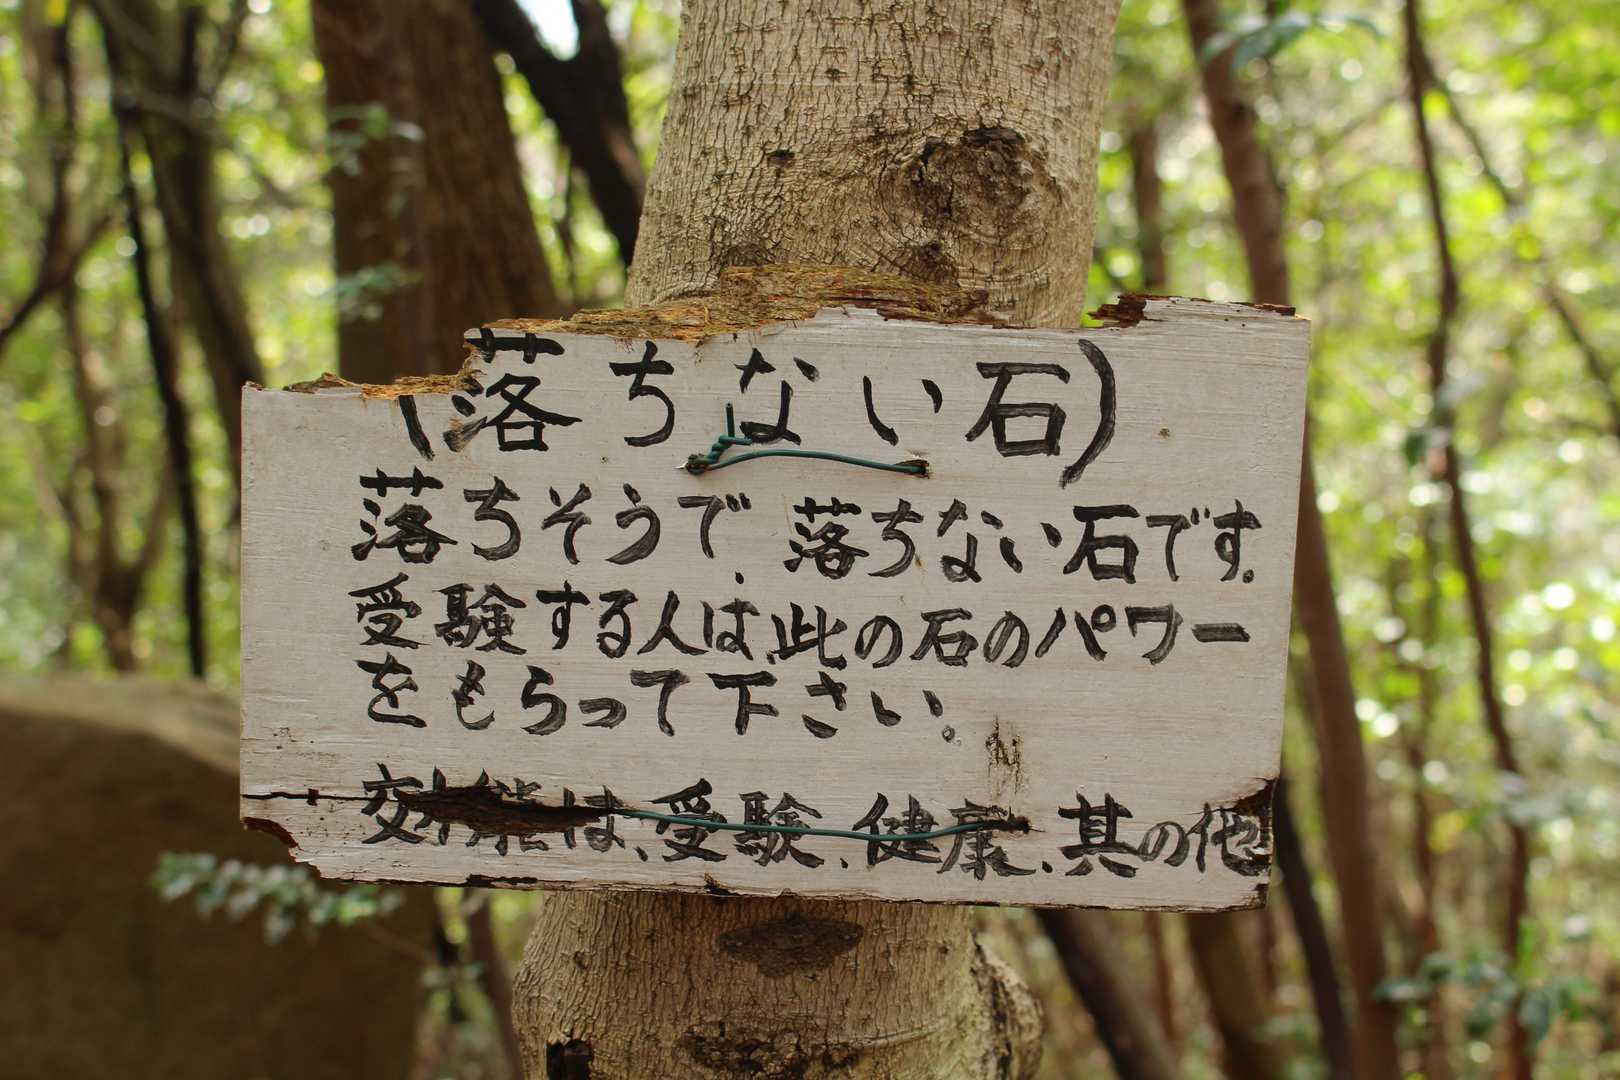 (落ちない石)
落ちそうで、落ちない石です。
受験する人は、此の石のパワー
をもらって下さい。
効能は、受験、健康、其の他